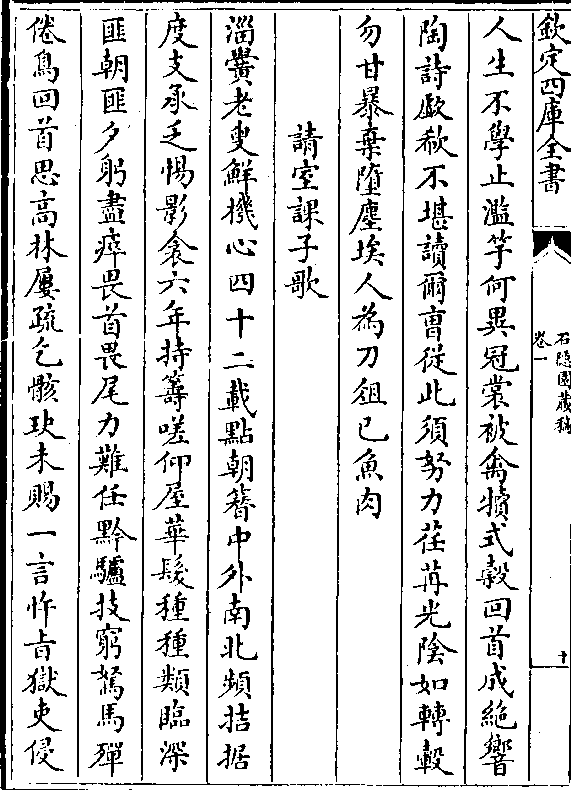 欽定四庫全書
石隱園藏稿
卷一
十
人生不學止濫竽何異冠裳被禽犢式穀回首成絶響
陶詩廢秋不堪讀爾曹從此須努力荏苒光陰如轉轂
勿甘暴棄墮塵埃人為刀俎已魚肉
請室課子歌
淄黌老叟鮮機心四十二載點朝簪中外南北頻拮据
度支承乏惕影衾六年持籌嗟仰屋華髮種種類臨深
匪朝匪夕躬盡瘁畏首畏尾力難任黔驢技窮駑馬殫
倦鳥回首思高林屢疏乞骸玦未賜一言忤㫖獄吏侵